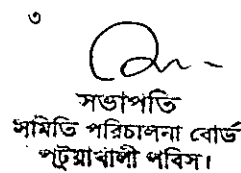 ৩
সভাপতি
সমিতি পরিচালনা বোর্ড
পটুয়াখালী পবিস।